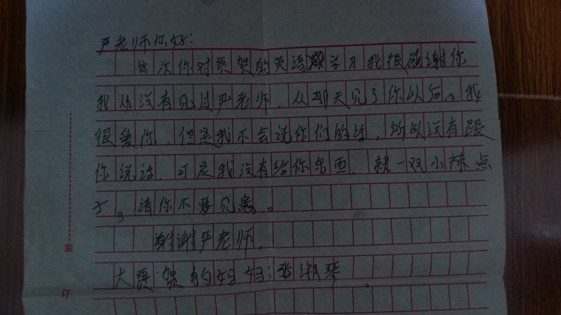 严老师你好:
这次你对贾贺的英语学习我很感谢你
我从没有见过严老师,从那天见了你以后。我
很爱你,但是我不会说你们的话,所以没有跟
你说话,可是我没有给你东西,就一双小辣点
子。请你不要见怪。
谢谢严老师。
大 贺的妈妈:李淑琴
订